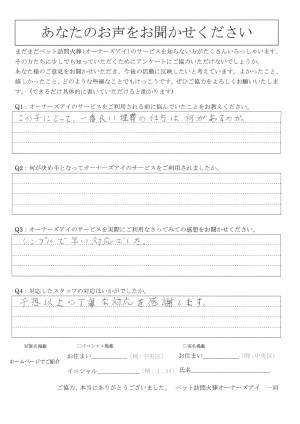 あなたのお声をお聞かせください
まだまだペット訪問火葬(オーナーズアイ)のサービスを知らない方がたくさんいらっしゃいます。
その方たちに少しでも知っていただくためにアンケートにご協力いただけないでしょうか。
あなた様のご意見をお聞かせいただき、今後の活動に反映したいと考えています。よかったこと、
嬉しかったこと、どのような些細なことでもけっこうです。ぜひご協力をよろしくお願いいたしま
す。(できるだけ具体的に書いていただけると助かります)
Q1:オーナーズアイのサービスをご利用される前に悩んでいたことをお教えください。
この子にとって、一番良い埋葬の仕方は何があるのか。
Q2:何が決め手となってオーナーズアイのサービスをご利用されましたか。
Q3:オーナーズアイのサービスを実際にご利用なさってみての感想をお聞かせください。
シンプルで早い対応でした。
Q4:対応したスタッフの対応はいかがでしたか。
予想以上の丁寧な対応を感謝します。
ホームページでご紹介
□イニシャル掲載
お住まい (例:中央区)
イニシャル (例:J.H)
□実名掲載
お住まい (例:中央区)
氏名
ご協力、本当にありがとうございました。 ペット訪問火葬オーナーズアイ 一同